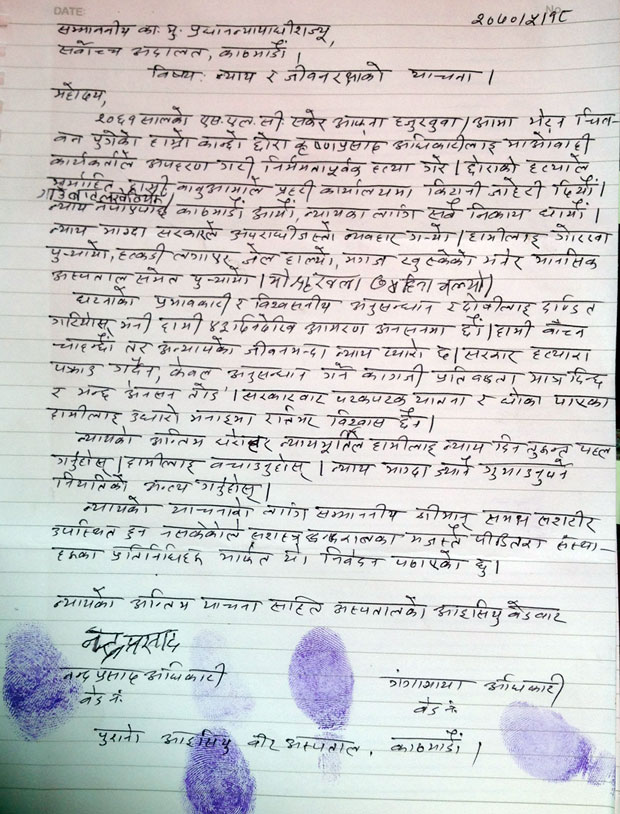 DATE:
No.
२०७०/५/१८
सम्माननीय का. मु. प्रधानन्यायाधीशज्यू,
सर्वोच्च अदालत, काठमाडौँ ।
विषय: न्याय र जीवनरक्षाको याचना ।
महोदय,
२०६१ सालको एस.एल.सी. सकेर आफ्ना हजुरबुवा / आमा भेट्न चित-
वन पुगेको हाम्रो कान्छो छोरा कृष्णप्रसाद अधिकारीलाई माओवादी
कार्यकर्ताले अपहरण गरी निर्ममतापूर्वक हत्या गरे । छोराको हत्याले
मर्माहित हामी बाबुआमाले प्रहरी कार्यालयमा किटानी जाहेरी दियौँ ।
न्याय नपाएपछि काठमाडौँ आयौँ, न्यायका लागि सबै निकाय धायौँ ।
न्याय माग्दा सरकारले अपराधीजस्तो व्यवहार गर्‍यो । हामीलाई गोरखा
पुर्‍यायो, हत्कडी लगाएर जेल हाल्यो, मगज खुस्केको भनेर मानसिक
अस्पताल समेत पुर्‍यायो ।
घटनाको प्रभावकारी र विश्वसनीय अनुसन्धान र दोषीलाई दण्डित
गरियोस् भनी हामी ४३ दिनदेखि आमरण अनसनमा छौँ । हामी बाँच्न
चाहन्छौँ तर अन्यायको जीवनभन्दा न्याय प्यारो छ । सरकार हत्यारा
पक्राउ गर्दैन, केवल अनुसन्धान गर्ने कागजी प्रतिवद्धता मात्र दिन्छ
र भन्छ अनसन तोड । सरकारबाट पटकपटक यातना र धोका पाएका
हामीलाई उधारो भनाइमा रत्तिभर विश्वास छैन ।
न्यायको अन्तिम धरोहर न्यायमूर्तिले हामीलाई न्याय दिन तुरून्त पहल
गर्नुहोस् । हामीलाई बचाउनुहोस् । न्याय माग्दा ज्यानै गुमाउनुपर्ने
नियतिको अन्त्य गर्नुहोस् ।
न्यायको याचनाको लागि सम्माननीय श्रीमान् समक्ष सशरीर
उपस्थित हुन नसकेकोले सशस्त्र द्वन्द्वकालका मजस्तै पीडितका संस्था-
हरूका प्रतिनिधिहरू मार्फत यो निवेदन पठाएको छु ।
न्यायको अन्तिम याचना सहित अस्पतालको आइसियु बेडबाट
नन्दप्रसाद
नन्द प्रसाद अधिकारी
गंगामाया अधिकारी
बेड नं.
बेड नं.
पुरानो आइसियु वीर अस्पताल, काठमाडौँ ।